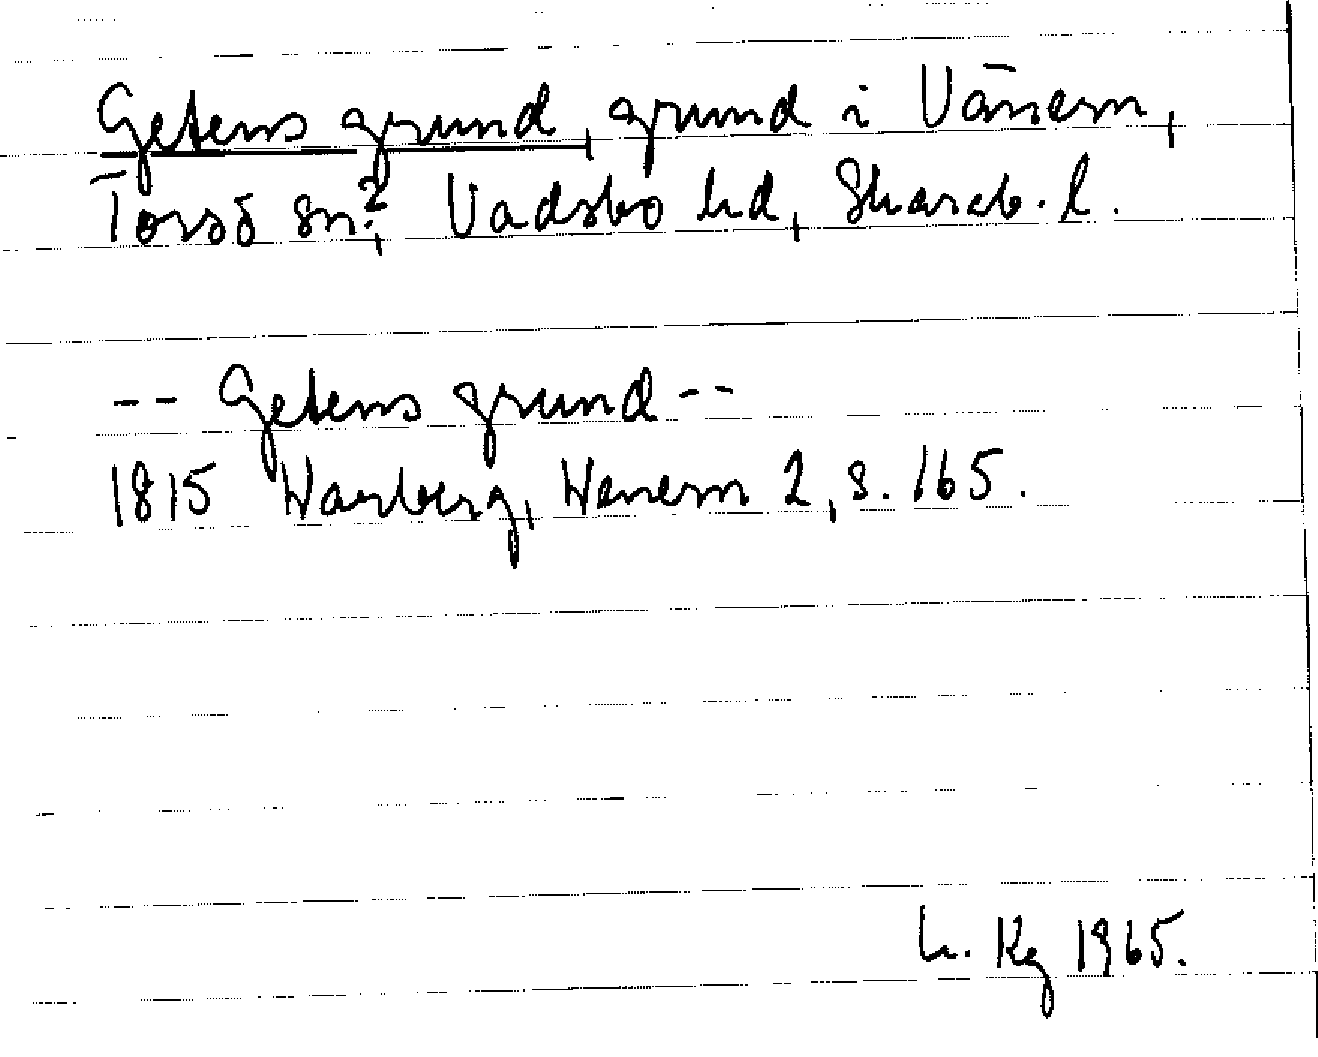 Getens grund, grund i Vänern,
Torsö sn?, Vadsbo hd, Skarab. l.
-- Getens grund --
1815 Warberg, Wenern 2, s. 165.
h. Kg 1965.